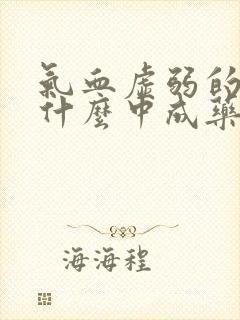 氣血虛弱的
什麼中成藥
海海程